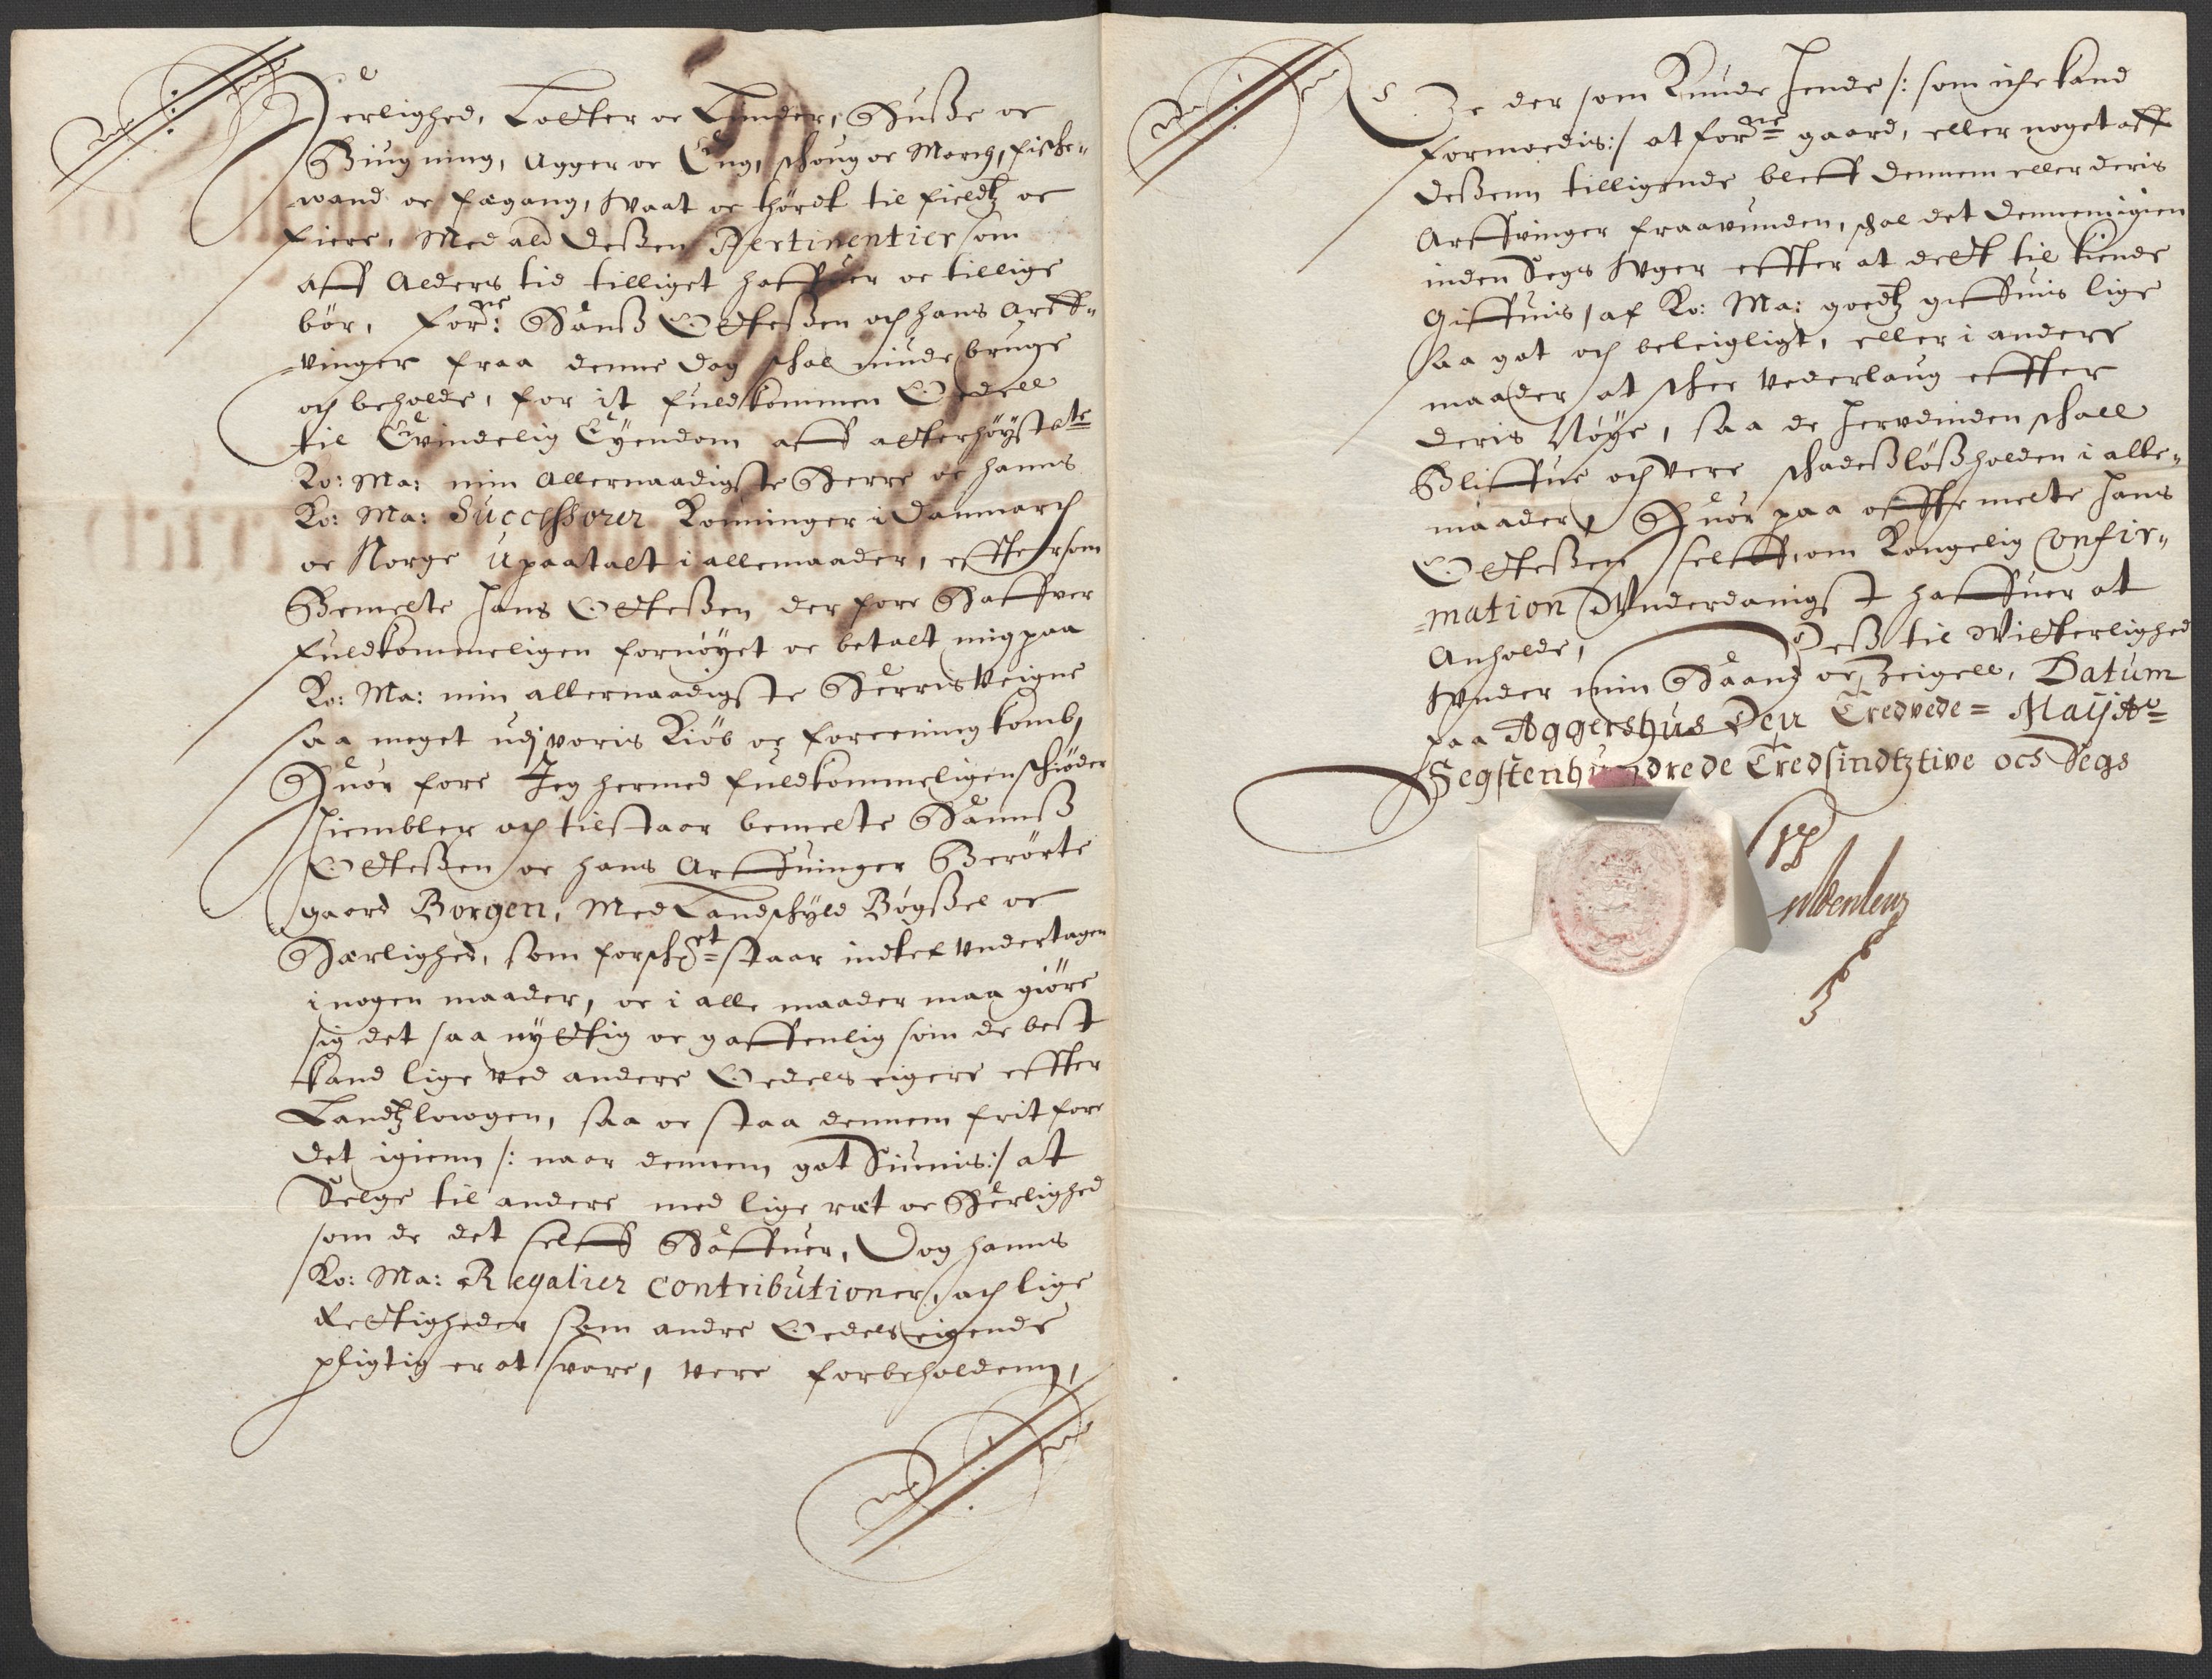 Herlighed, Lotter oc Lunder, Husze oc
Biugning, Agger oc Eng, schoug oc March, fische-
wand oc fægang, Waat oc thördt til fieldtz oc
fiere, Med ald deszen Pertinentier som
aff Alders tid tilliget haffuer oc tillige
bör, forne: Hansz Ottesszen och hans Arff-
vinger fraa denne dag schal niude bruge
och beholde, for it fuldkommen Oedell
til Evindelig Eyendom aff alterhöystbte
Ko: Ma: min Allernaadigste Herre oc hanns
Ko: Ma: Successorer Konninger i Danmarch
oc Norge Upaatalt i allemaader, effter som
Bemelte Hans Otteszen der fore Haffver
fuldkommeligen fornöyet oc betalt mig paa
Ko: Ma: min allernaadigste Herris Veigne
saa meget udj voris Kiöb oc foreening komb,
Huor fore Jeg hermed fuldkommeligen schiöder
hiembler och tilstaar bemelte Hannsz
Otteszen oc hans Arffuinger Berörte
gaard Borgen, Med Landschyld Bögszel oc
Hærlighed, som forschrt staar indtet Undertagen
i nogen maader, oc i alle maader maa giöre
sig det saa nyttig oc gaffenlig som de best
kand lige Ved andere Oedels eigere effter
Landtzlowgen, saa oc staa dennem frit fore
det igienn /: naar dennem got Siunis :/ at
Selge til andere med lige ræt oc Herlighed
som de det selff Haffuer, Dog hanns
Ko: Ma: Regalier Contributioner, och lige
Rettigheder som andre Oedels eigende
pligtig er at svare, vere forbeholdenn,
Oc der som Kunde hende /: som iche kand
formoedis :/ at forne gaard, eller noget aff
deszenn tilligende bleff dennem eller deris
Arffvinger fraavunden, schal det dennem igien
inden Segs Uger effter at dett til kiende
Giffuis, af Ko: Ma: goedtz giffuis lige
saa got och beleigligt, eller i andere
maader at schee Vederlaug effter
deris Nöye, saa de herudinden schall
Bliffue och Vere schadeszlöszholden i alle-
maader, Huor paa offtemelte Hans
Otteszen selff, om Kongelig Confir-
mation Underdanigst haffuer at
Anholde, Desz til Witterlighed
Under min Haand oc Zeigell, Datum
paa Aggershus Den Tredvede= Maij Ao=
Segstenhundrede Tredsindtztive och Segs